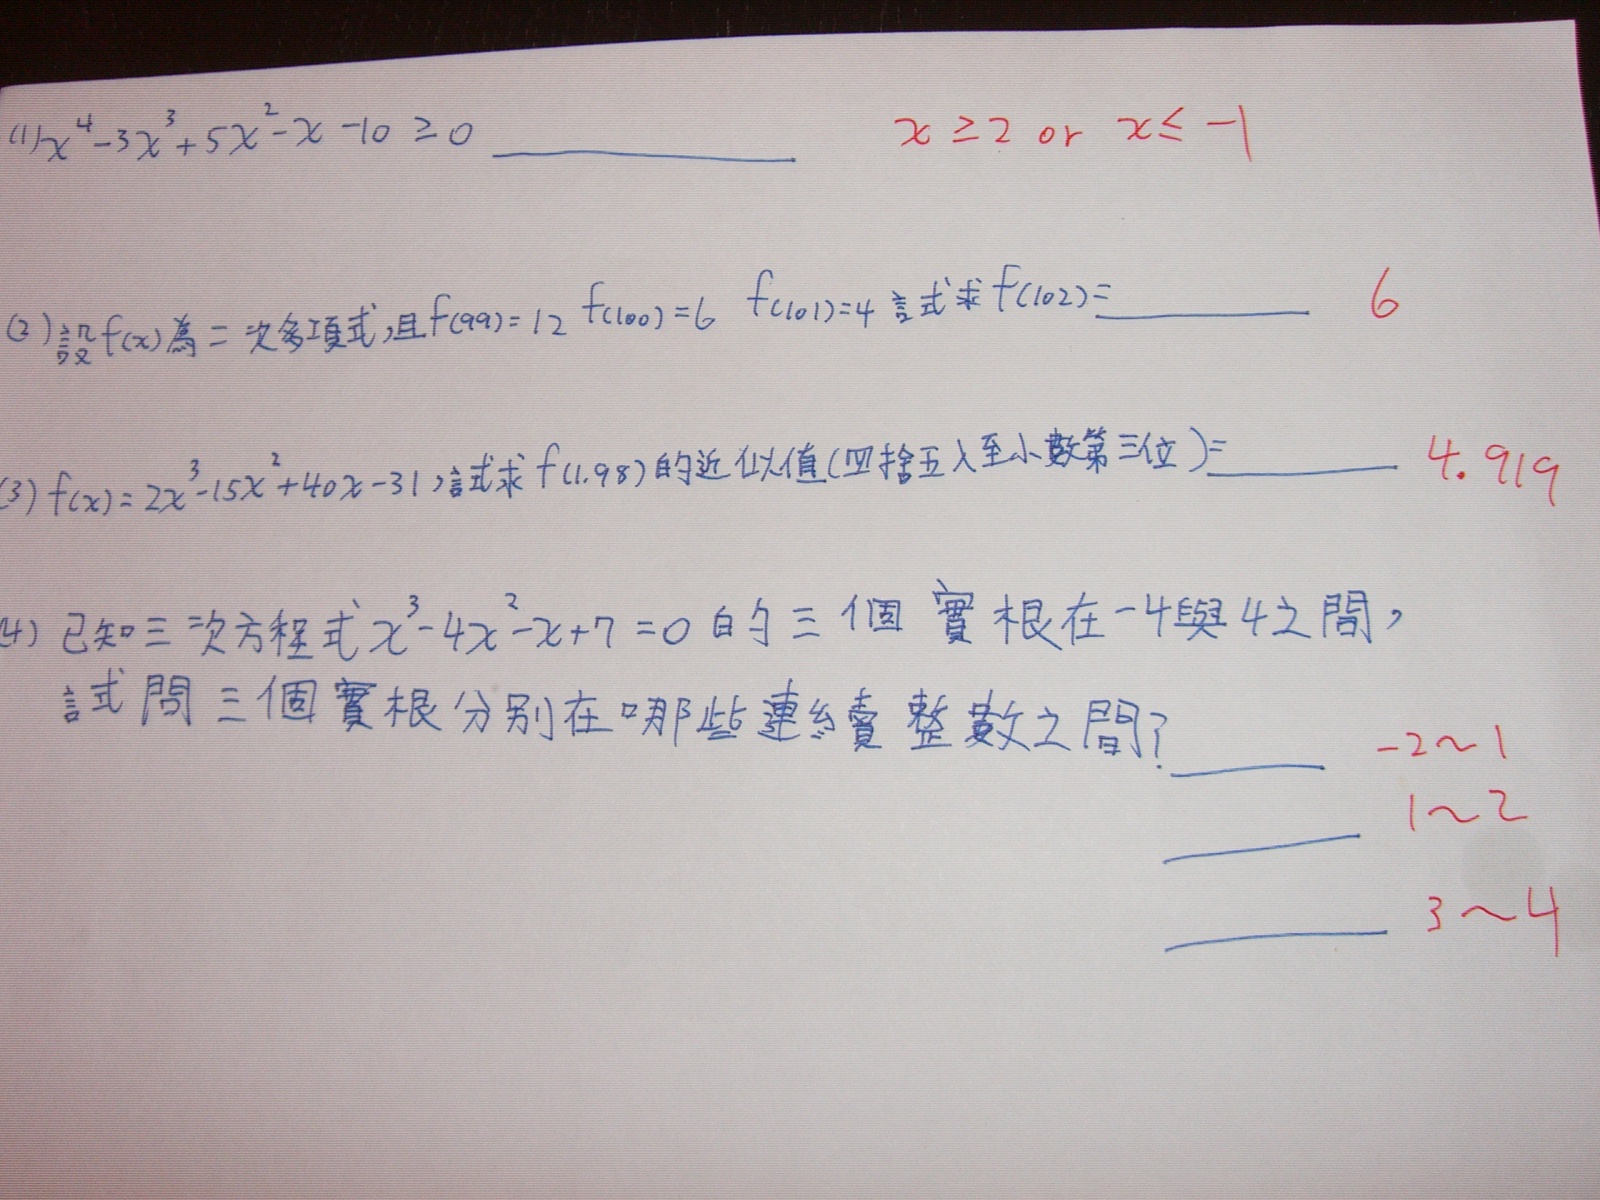 (1) x⁴-3x³+5x²-x-10≥0 ________ x≥2 or x≤-1
(2) 設f(x)為二次多項式,且f(99)=12 f(100)=6 f(101)=4 試求f(102)=________ 6
(3) f(x)=2x³-15x²+40x-31,試求f(1.98)的近似值(四捨五入至小數第三位)=________ 4.919
(4) 已知三次方程式x³-4x²-x+7=0的三個實根在-4與4之間,
試問三個實根分別在哪些連續整數之間?________ -2~1
________ 1~2
________ 3~4